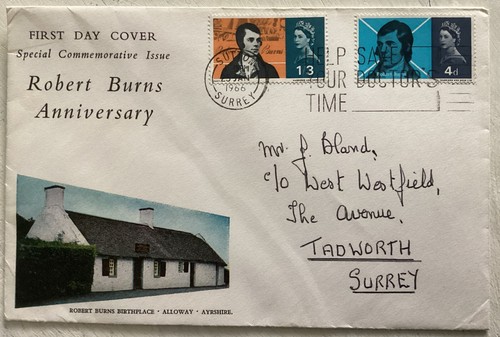 FIRST DAY COVER
Special Commemorative Issue
Robert Burns
Anniversary
Burns
1'3
4d
SUTTON
1966
SURREY
HELP SAVE
YOUR DOCTOR'S
TIME
Mr. J. Bland,
c/o West Westfield,
The Avenue,
TADWORTH
SURREY
ROBERT BURNS BIRTHPLACE · ALLOWAY · AYRSHIRE.